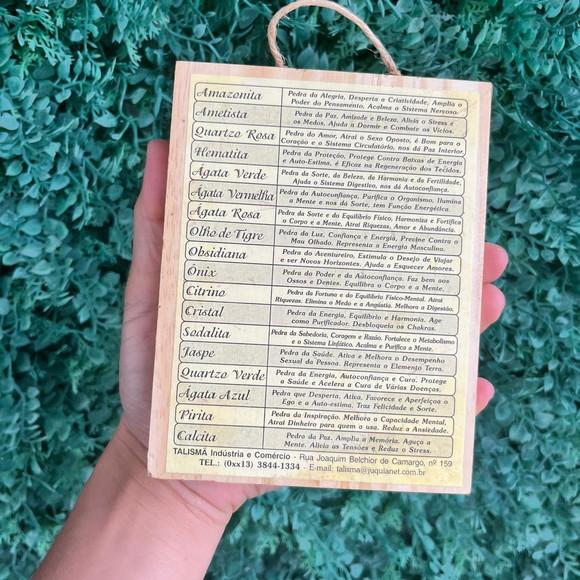 Amazonita
Pedra da Alegria, Desperta a Criatividade, Amplia o
Poder do Pensamento, Acalma o Sistema Nervoso.
Ametista
Pedra da Paz, Amizade e Beleza, Alivia o Stress e
os Medos. Ajuda a Dormir e Combate os Vícios.
Quartzo Rosa
Pedra do Amor, Atrai o Sexo Oposto, é Bom para o
Coração e o Sistema Circulatório, nos dá Paz Interior.
Hematita
Pedra da Proteção, Protege Contra Baixas de Energia
e Auto-Estima, é Eficaz na Regeneração dos Tecidos.
Ágata Verde
Pedra da Sorte, da Beleza, da Harmonia e da Fertilidade,
Ajuda o Sistema Digestivo, nos dá Autoconfiança.
Ágata Vermelha
Pedra da Autoconfiança, Purifica o Organismo, Ilumina
a Mente e nos dá Sorte, tem Função Energética.
Ágata Rosa
Pedra da Sorte e do Equilíbrio Físico, Harmoniza e Fortifica
o Corpo e a Mente, Atrai Riquezas, Amor e Abundância.
Olho de Tigre
Pedra da Luz, Confiança e Energia, Previne Contra o
Mau Olhado. Representa a Energia Masculina.
Obsidiana
Pedra do Aventureiro, Estimula o Desejo de Viajar
e ver Novos Horizontes. Ajuda a Esquecer Amores.
Ônix
Pedra do Poder e da Autoconfiança. Faz bem aos
Ossos e Dentes. Equilibra o Corpo e a Mente.
Citrino
Pedra da Fortuna e do Equilíbrio Físico-Mental. Atrai
Riquezas. Elimina o Medo e a Angústia. Melhora a Digestão.
Cristal
Pedra da Energia, Equilíbrio e Harmonia. Age
como Purificador. Desbloqueia os Chakras.
Sodalita
Pedra da Sabedoria, Coragem e Razão. Fortalece o Metabolismo
e o Sistema Linfático. Acalma e Purifica a Mente.
Jaspe
Pedra da Saúde. Ativa e Melhora o Desempenho
Sexual da Pessoa. Representa o Elemento Terra.
Quartzo Verde
Pedra da Energia, Autoconfiança e Cura. Protege
a Saúde e Acelera a Cura de Várias Doenças.
Ágata Azul
Pedra que Desperta, Ativa, Favorece e Aperfeiçoa o
Ego e a Auto-estima. Traz Felicidade e Sorte.
Pirita
Pedra da Inspiração. Melhora a Capacidade Mental,
Atrai Dinheiro para quem o usa. Reduz a Ansiedade.
Calcita
Pedra da Paz. Amplia a Memória. Aguça a
Mente. Alivia as Tensões e Reduz o Stress.
TALISMÃ Indústria e Comércio - Rua Joaquim Belchior de Camargo, nº 159
TEL.: (0xx13) 3844-1334 - E-mail: talisma@juquianet.com.br